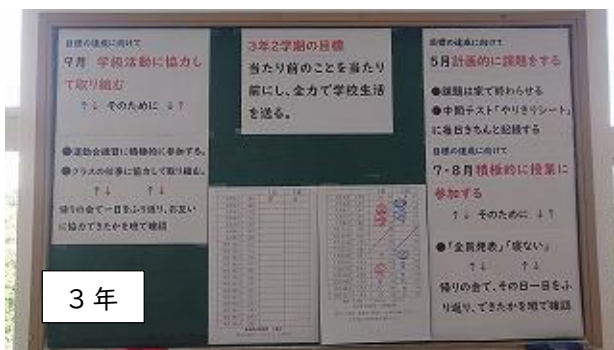 目標の達成に向けて
9月 学級活動に協力し
て取り組む
↑↓ そのために ↓↑
●運動会練習に積極的に参加する。
●クラスの仕事に協力して取り組む。
↑↓ ↑↓
帰りの会で一日をふり返り、お互い
に協力できたかを班で確認
3年2学期の目標
当たり前のことを当たり
前にし、全力で学校生活
を送る。
目標の達成に向けて
5月計画的に課題をする
●課題は家で終わらせる
●中間テスト「やりきりシート」
に毎日きちんと記録する
目標の達成に向けて
7・8月積極的に授業に
参加する
↑↓ そのために ↓↑
●「全員発表」「寝ない」
↑↓ ↑↓
帰りの会で、その日一日をふ
り返り、できたかを班で確認
3年